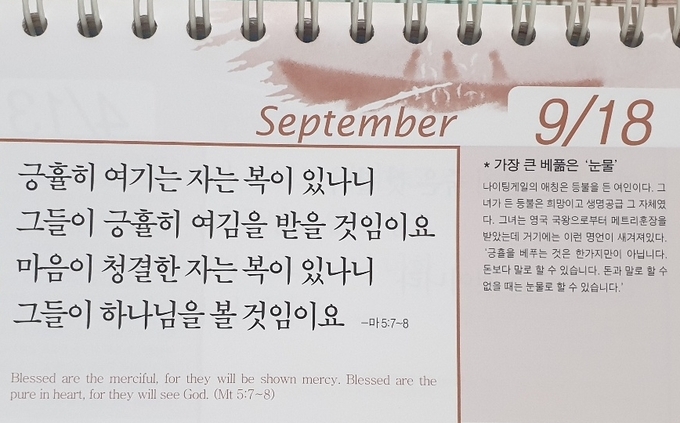 September
9/18
긍휼히 여기는 자는 복이 있나니
그들이 긍휼히 여김을 받을 것임이요
마음이 청결한 자는 복이 있나니
그들이 하나님을 볼 것임이요 -마 5:7~8
Blessed are the merciful, for they will be shown mercy. Blessed are the
pure in heart, for they will see God. (Mt 5:7~8)
* 가장 큰 베풂은 '눈물'
나이팅게일의 애칭은 등불을 든 여인이다. 그
녀가 든 등불은 희망이고 생명공급 그 자체였
다. 그녀는 영국 국왕으로부터 메트리훈장을
받았는데 거기에는 이런 명언이 새겨져있다.
'긍휼을 베푸는 것은 한가지만이 아닙니다.
돈보다 말로 할 수 있습니다. 돈과 말로 할 수
없을 때는 눈물로 할 수 있습니다.'